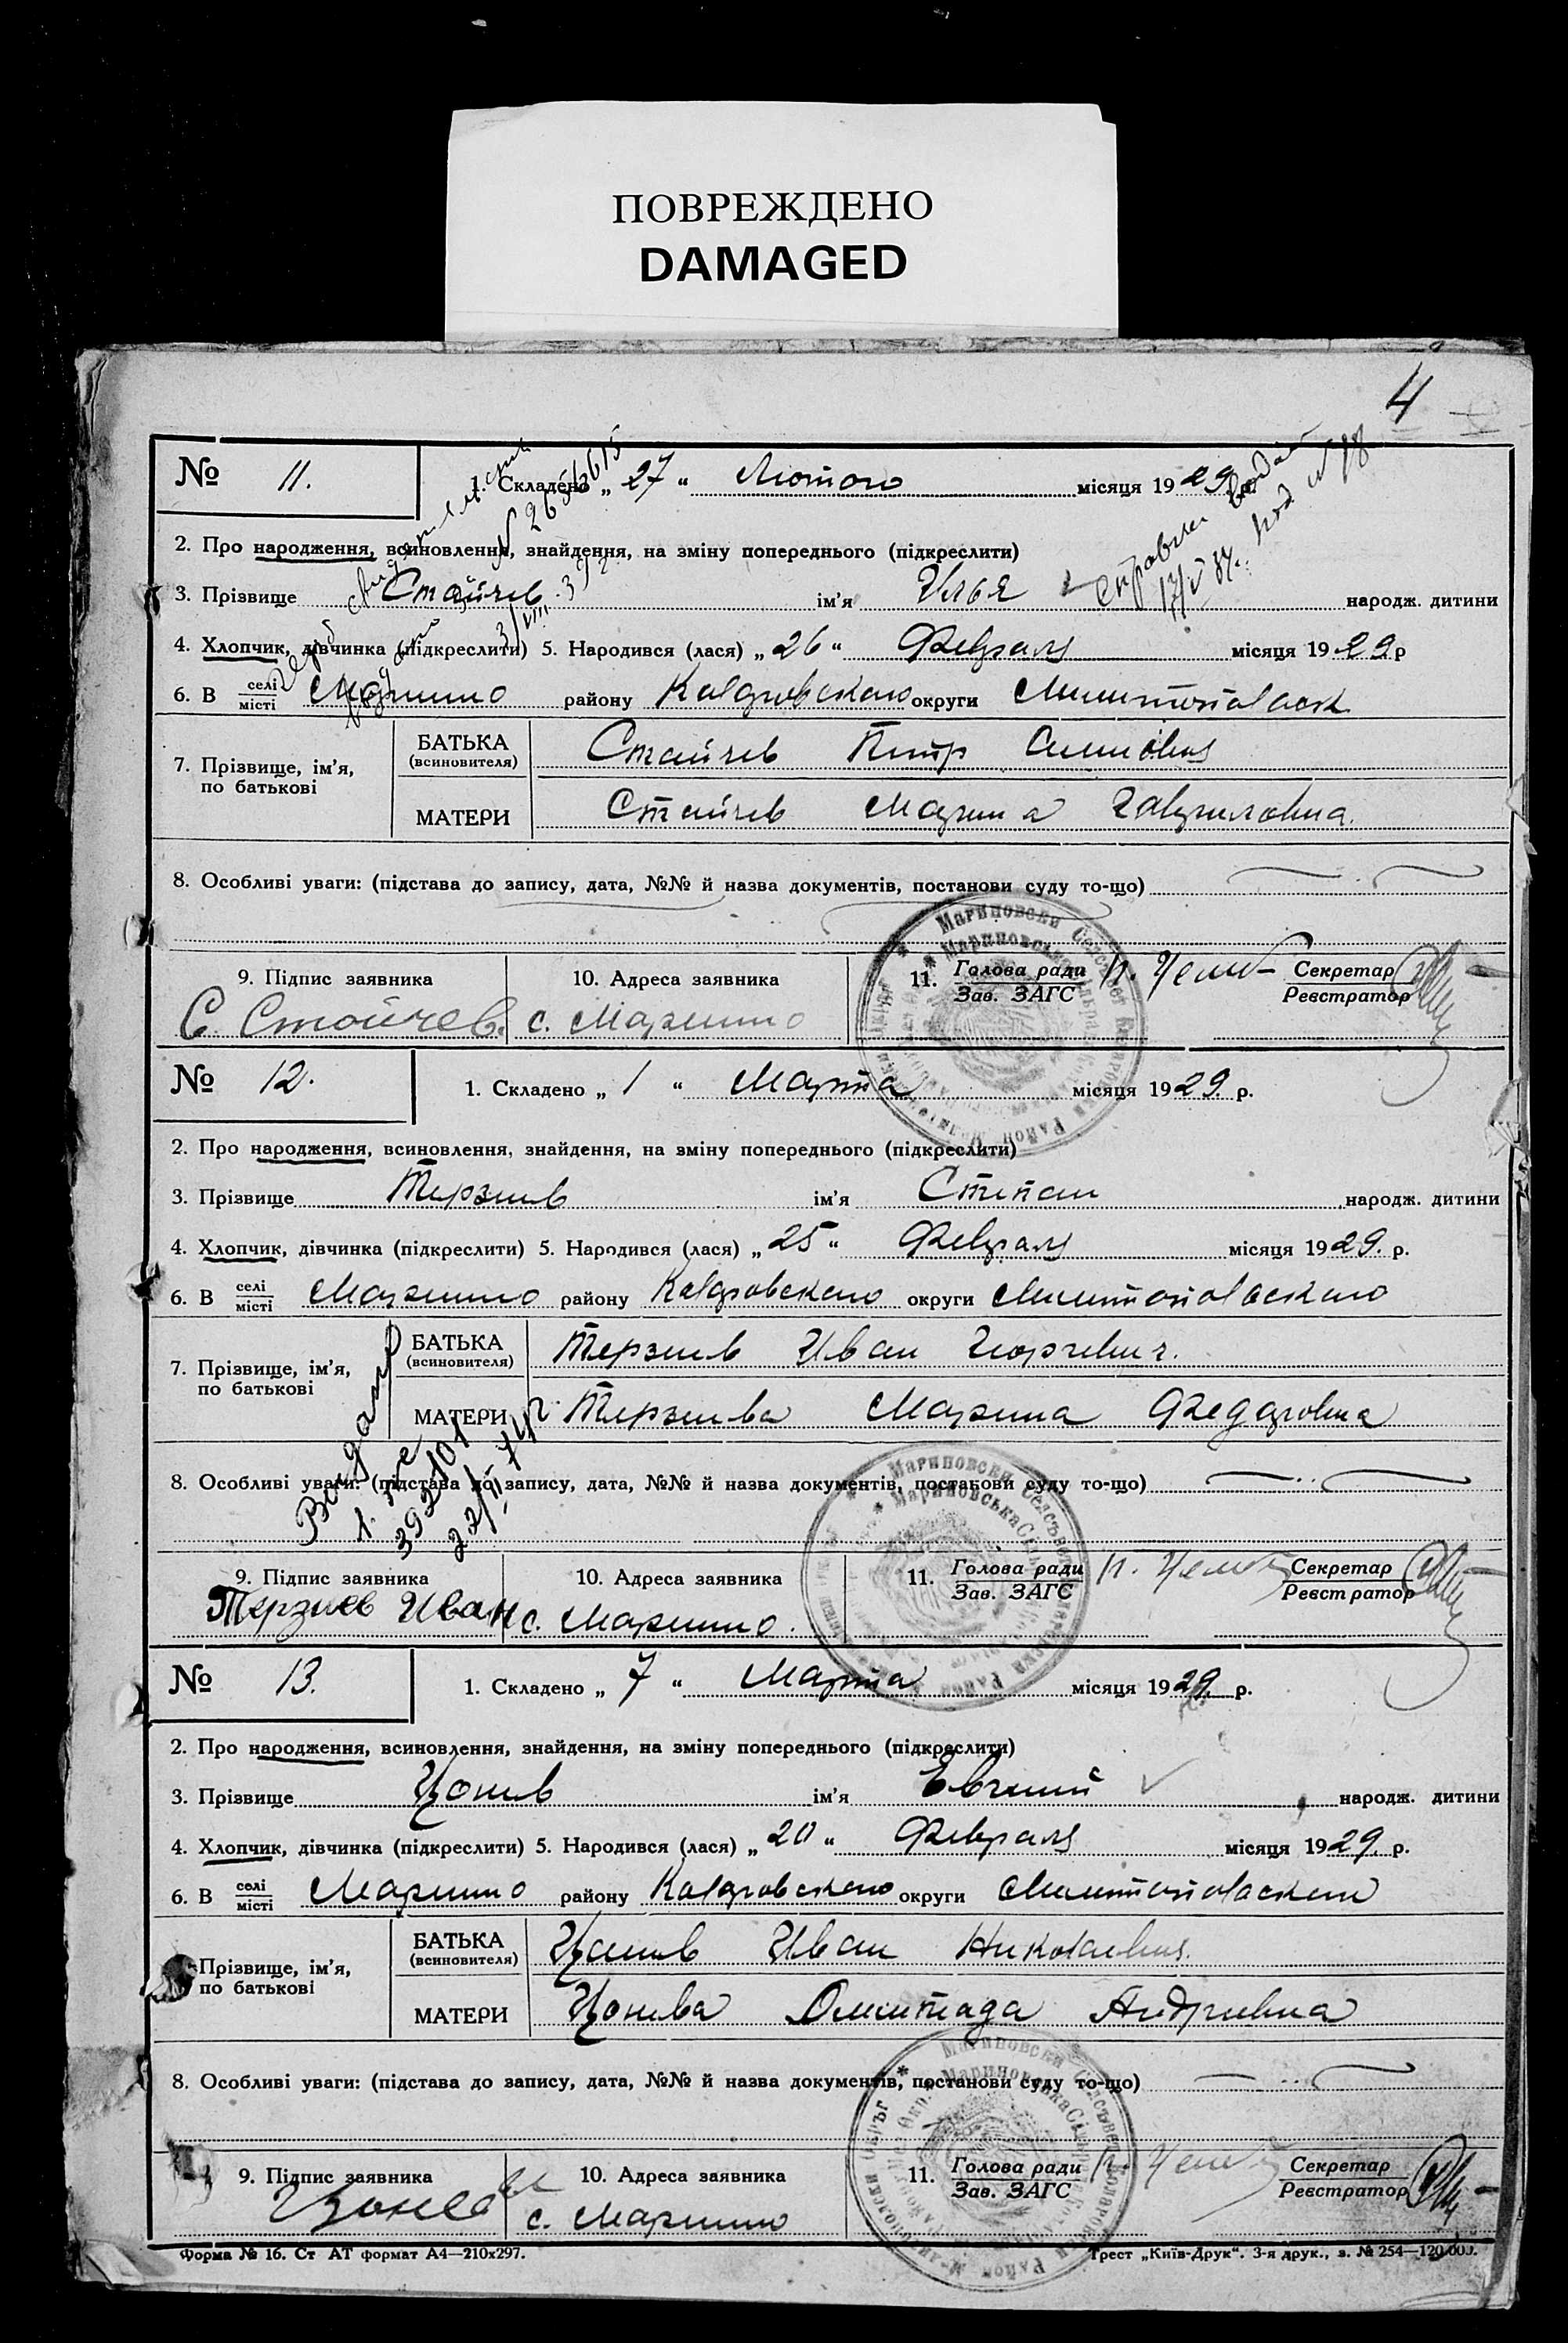 ПОВРЕЖДЕНО
DAMAGED
4
№ 11. 1. Складено „ 27 “ Лютого місяця 1929 р.
2. Про народження, всиновлення, знайдення, на зміну попереднього (підкреслити)
3. Прізвище Стойчев ім'я Илья народж. дитини
4. Хлопчик, дівчинка (підкреслити) 5. Народився (лася) „ 26 “ Февраля місяця 1929 р
6. В селі/місті Марино району Коларовского округи Милитопольск
7. Прізвище, ім'я, по батькові
БАТЬКА (всиновителя) Стойчев Петр Семенович
МАТЕРИ Стойчев Марина Гавриловна.
8. Особливі уваги: (підстава до запису, дата, №№ й назва документів, постанови суду то-що)
9. Підпис заявника 10. Адреса заявника 11. Голова ради/Зав. ЗАГС Секретар/Реєстратор
С. Стойчев. с. Марино
№ 12. 1. Складено „ 1 “ Марта місяця 1929. р.
2. Про народження, всиновлення, знайдення, на зміну попереднього (підкреслити)
3. Прізвище Терзиев ім'я Степан народж. дитини
4. Хлопчик, дівчинка (підкреслити) 5. Народився (лася) „ 25 “ Февраля місяця 1929. р.
6. В селі/місті Марино району Коларовского округи Милитопольского
7. Прізвище, ім'я, по батькові
БАТЬКА (всиновителя) Терзиев Иван Георгиевич.
МАТЕРИ Терзиева Марина Федоровна
8. Особливі уваги: (підстава до запису, дата, №№ й назва документів, постанови суду то-що)
9. Підпис заявника 10. Адреса заявника 11. Голова ради/Зав. ЗАГС Секретар/Реєстратор
Терзиев Иван с. Марино.
№ 13. 1. Складено „ 7 “ Марта місяця 1929. р.
2. Про народження, всиновлення, знайдення, на зміну попереднього (підкреслити)
3. Прізвище Цонев ім'я Евгений народж. дитини
4. Хлопчик, дівчинка (підкреслити) 5. Народився (лася) „ 20 “ Февраля місяця 1929. р.
6. В селі/місті Марино району Коларовского округи Милитопольского
Прізвище, ім'я, по батькові
БАТЬКА (всиновителя) Цонев Иван Николаевич.
МАТЕРИ Цонева Олимпиада Андреевна
8. Особливі уваги: (підстава до запису, дата, №№ й назва документів, постанови суду то-що)
9. Підпис заявника 10. Адреса заявника 11. Голова ради/Зав. ЗАГС Секретар/Реєстратор
Цонев с. Марино
Форма № 16. Ст АТ формат А4—210х297. Трест „Київ-Друк“. 3-я друк., з. № 254—120.000.